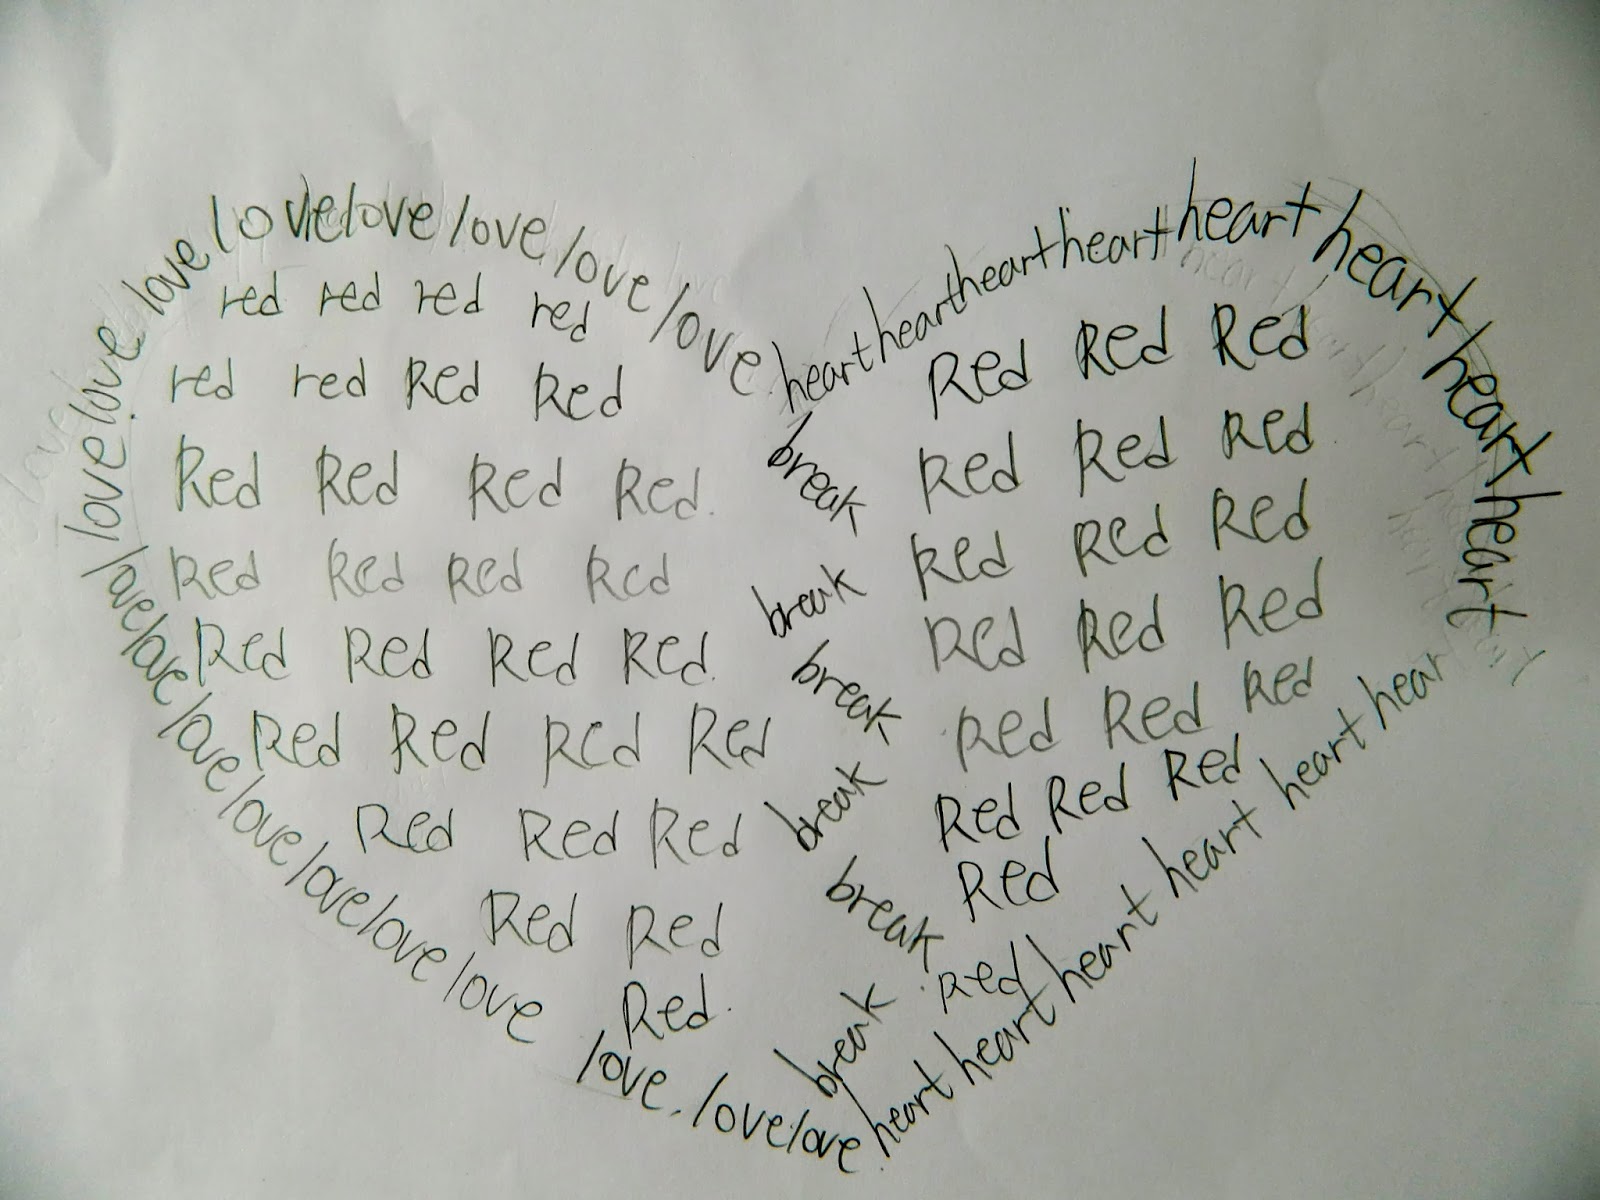 love love love love love love
love love love love love love love love love love love love love
heart heart heart heart heart heart heart heart
heart heart heart heart heart heart hear
red red red red
red red Red Red
Red Red Red Red.
Red Red Red Red
Red Red Red Red.
Red Red Red Red
Red Red Red
Red Red
Red.
break
break
break
break
break
break
Red Red Red
Red Red Red
Red Red Red
Red Red Red
Red Red Red
Red Red Red
Red
Red